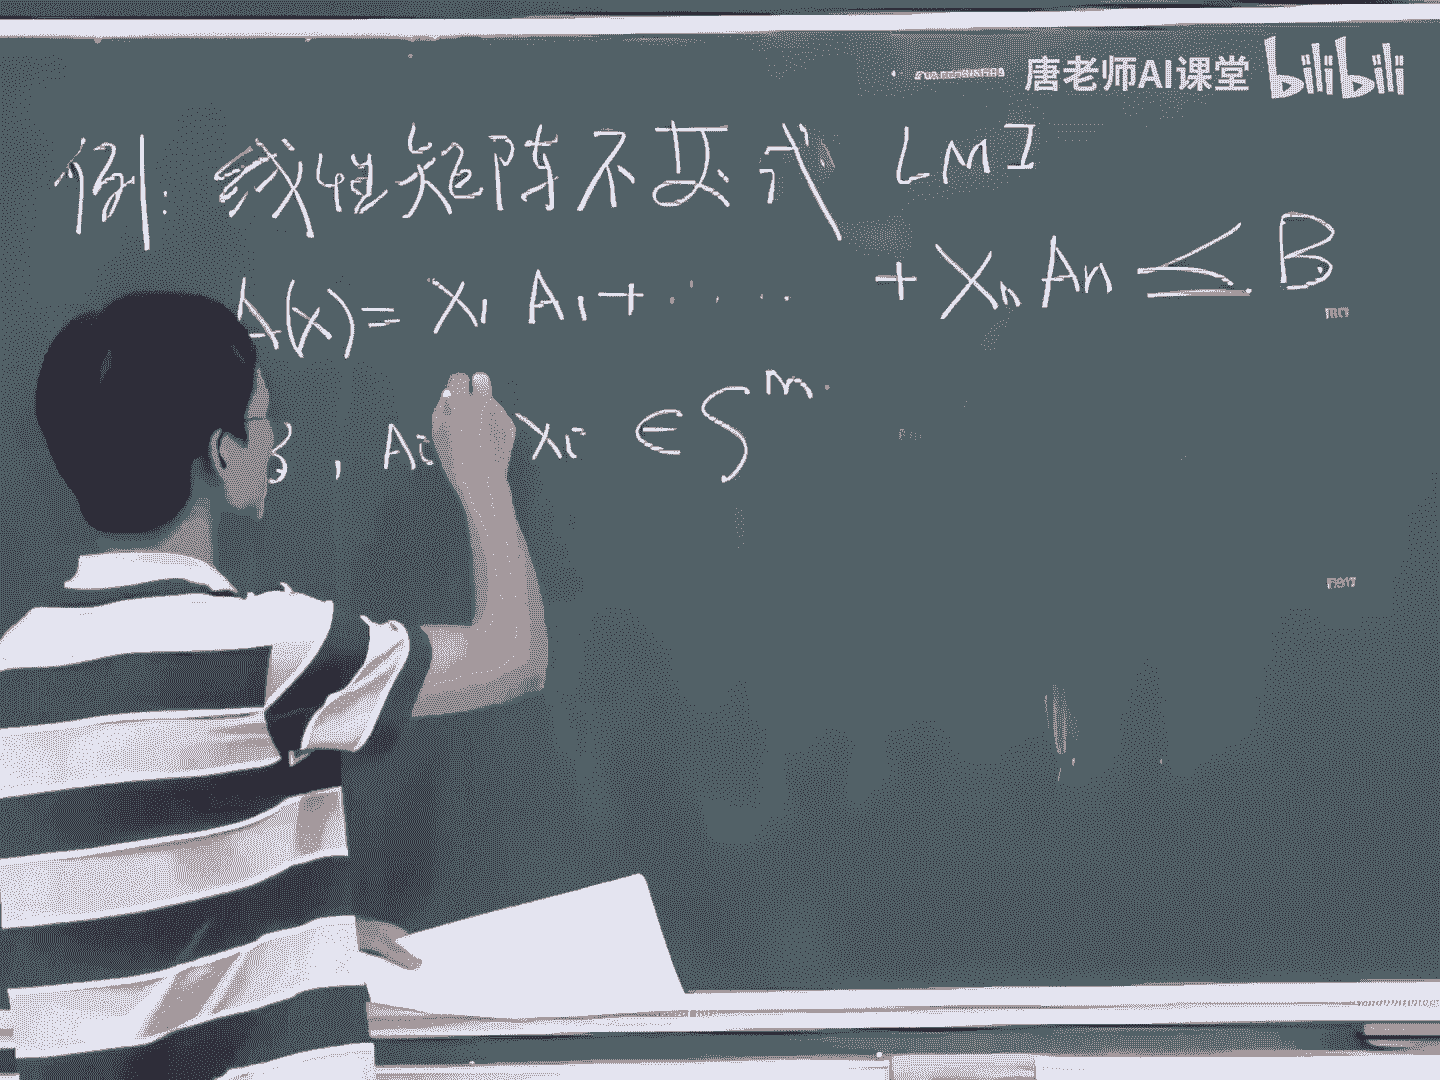 唐老师AI课堂 bilibili
例: 线性矩阵不变式 LMI
A(x)= X₁ A₁ + ····· + Xₙ Aₙ ≤ B
B , Ai Xi ∈ S^m